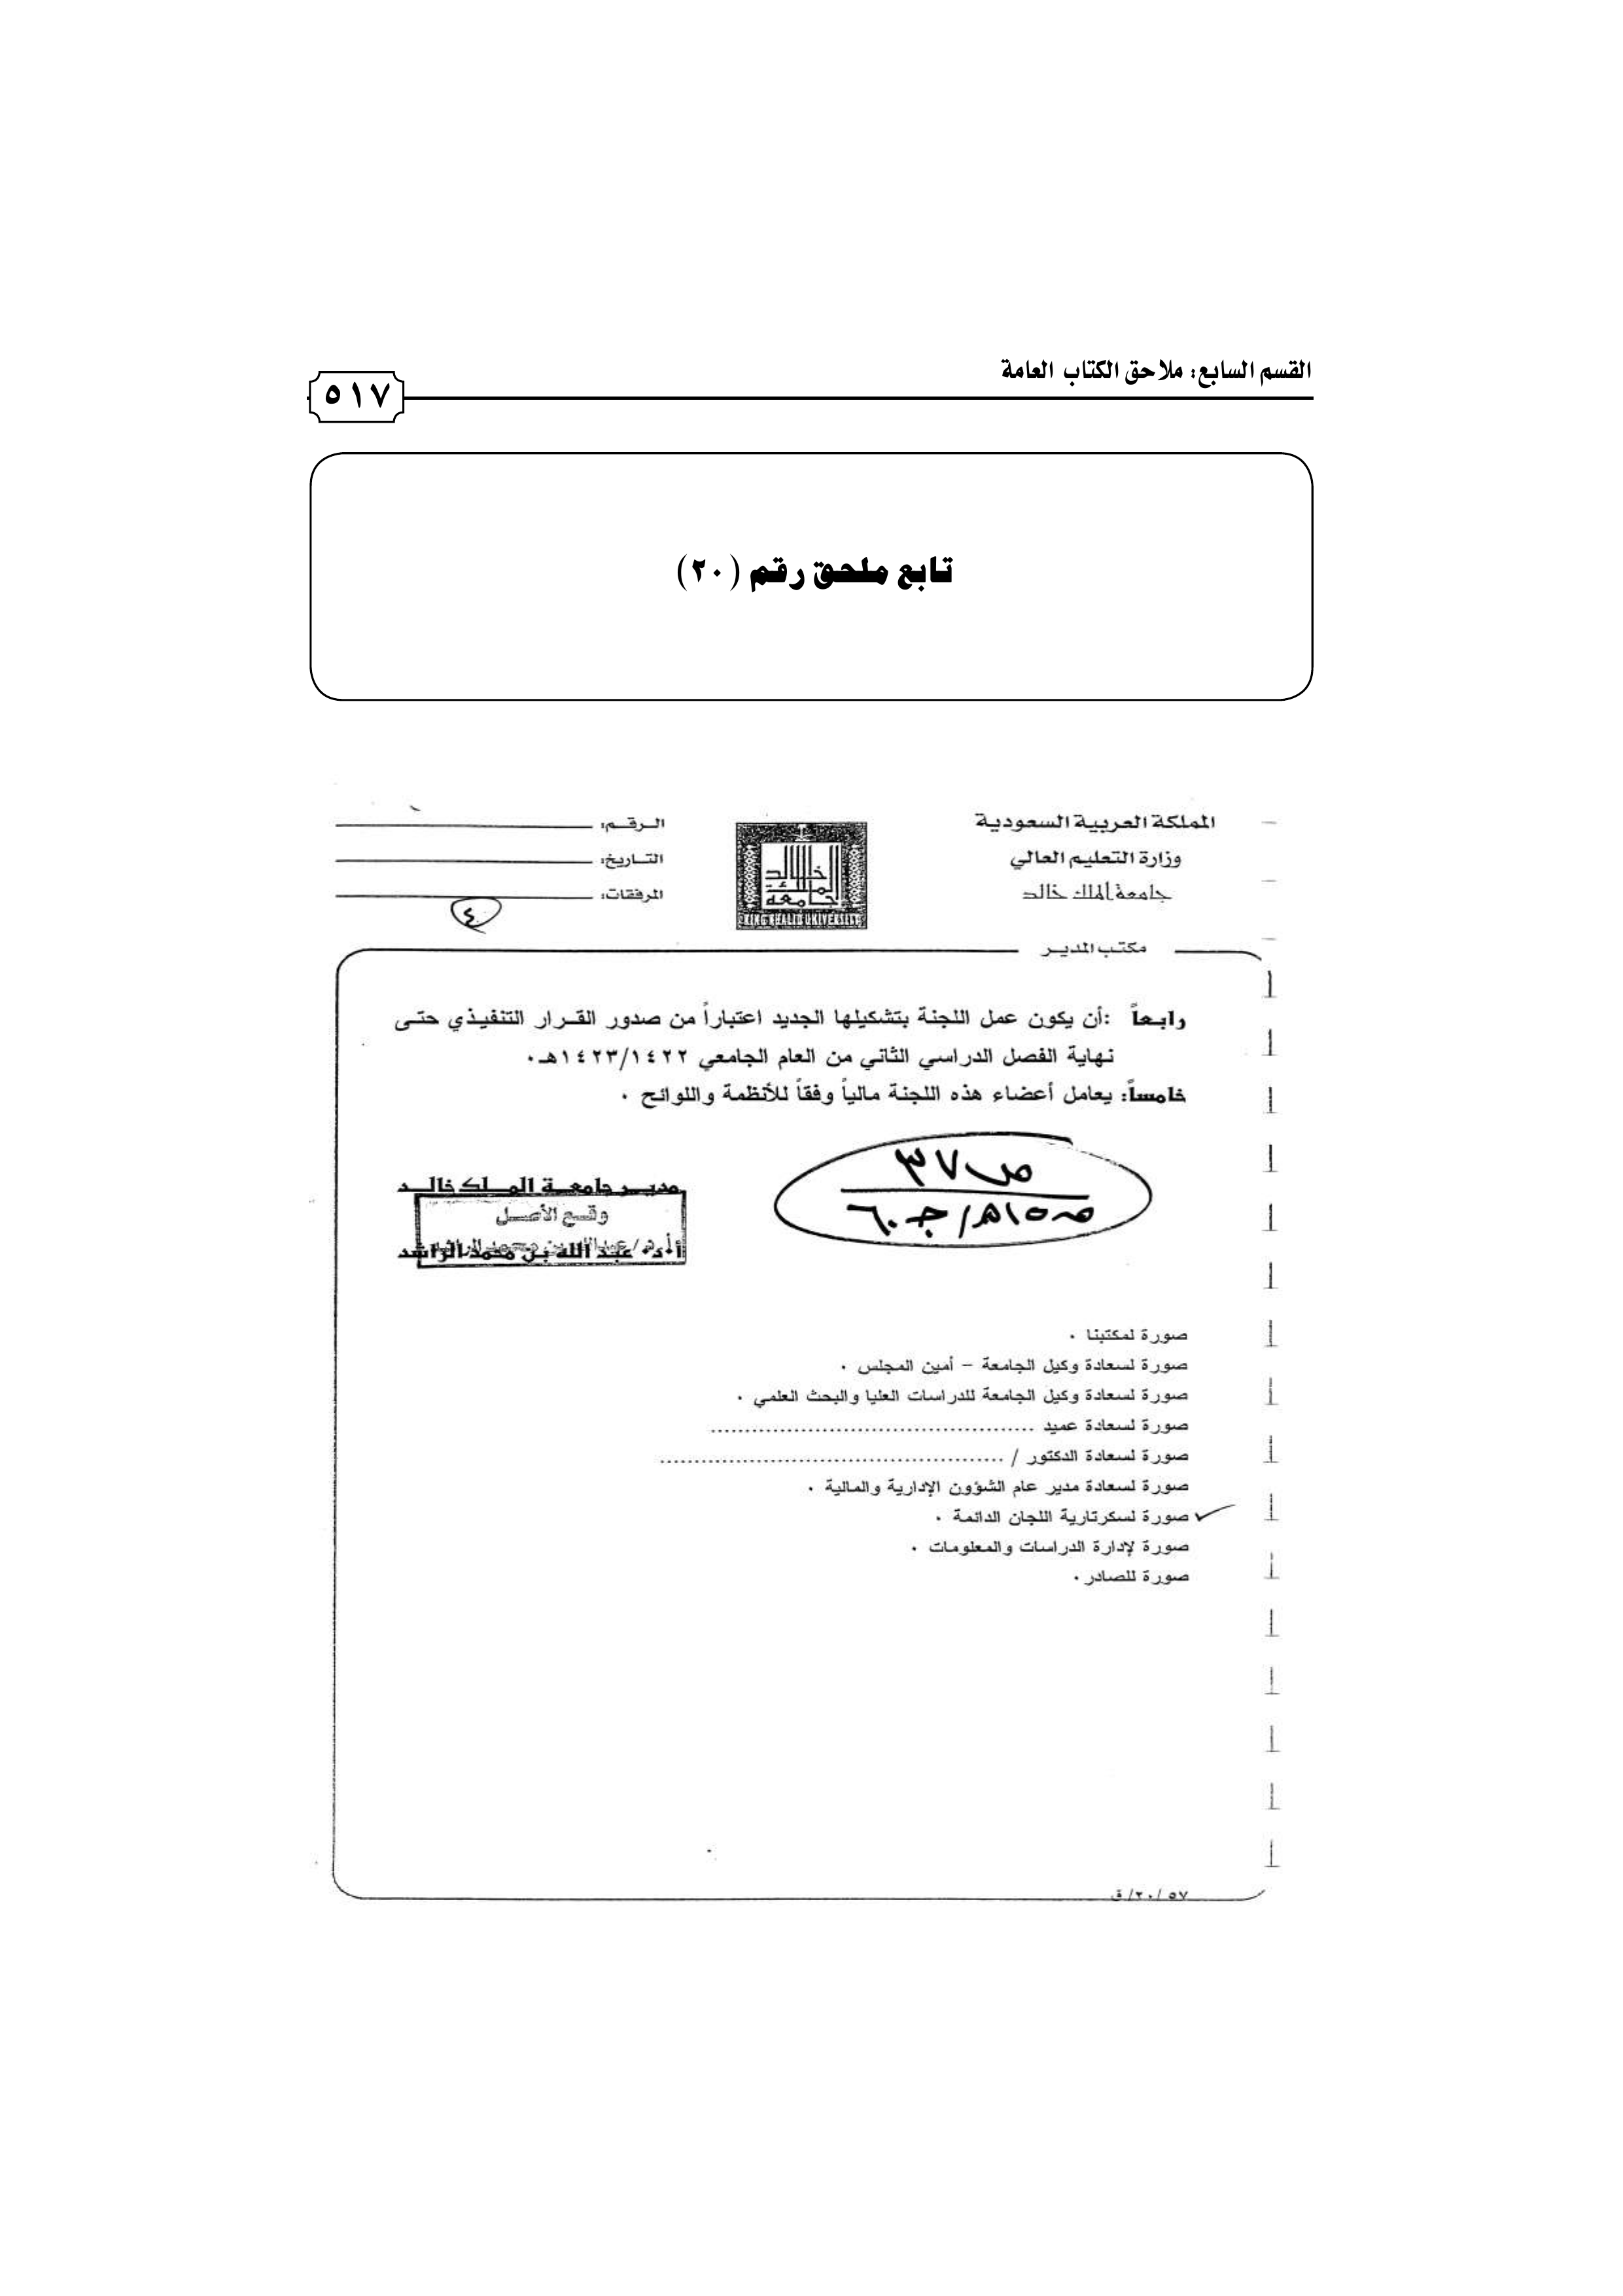 القسم السابع: ملاحق الكتاب العامة
٥١٧
تابع ملحق رقم (٢٠)
المملكة العربية السعودية
وزارة التعليم العالي
جامعة الملك خالد
خالد
الملك
جامعة
KING KHALID UNIVERSITY
الرقم:
التاريخ:
المرفقات:
٤
مكتب المدير
رابعاً :أن يكون عمل اللجنة بتشكيلها الجديد اعتباراً من صدور القرار التنفيذي حتى
نهاية الفصل الدراسي الثاني من العام الجامعي ١٤٢٣/١٤٢٢هـ٠
خامساً: يعامل أعضاء هذه اللجنة مالياً وفقاً للأنظمة واللوائح ٠
ص ٣٧
مدير جامعة الملك خالد
وقع الأصل
أ٠د٠ عبد الله بن محمد الراشد
صورة لمكتبنا ٠
صورة لسعادة وكيل الجامعة – أمين المجلس ٠
صورة لسعادة وكيل الجامعة للدراسات العليا والبحث العلمي ٠
صورة لسعادة عميد ...............................................
صورة لسعادة الدكتور / ..................................................
صورة لسعادة مدير عام الشؤون الإدارية والمالية ٠
صورة لسكرتارية اللجان الدائمة ٠
صورة لإدارة الدراسات والمعلومات ٠
صورة للصادر ٠
٥٧ /٢٠/ق